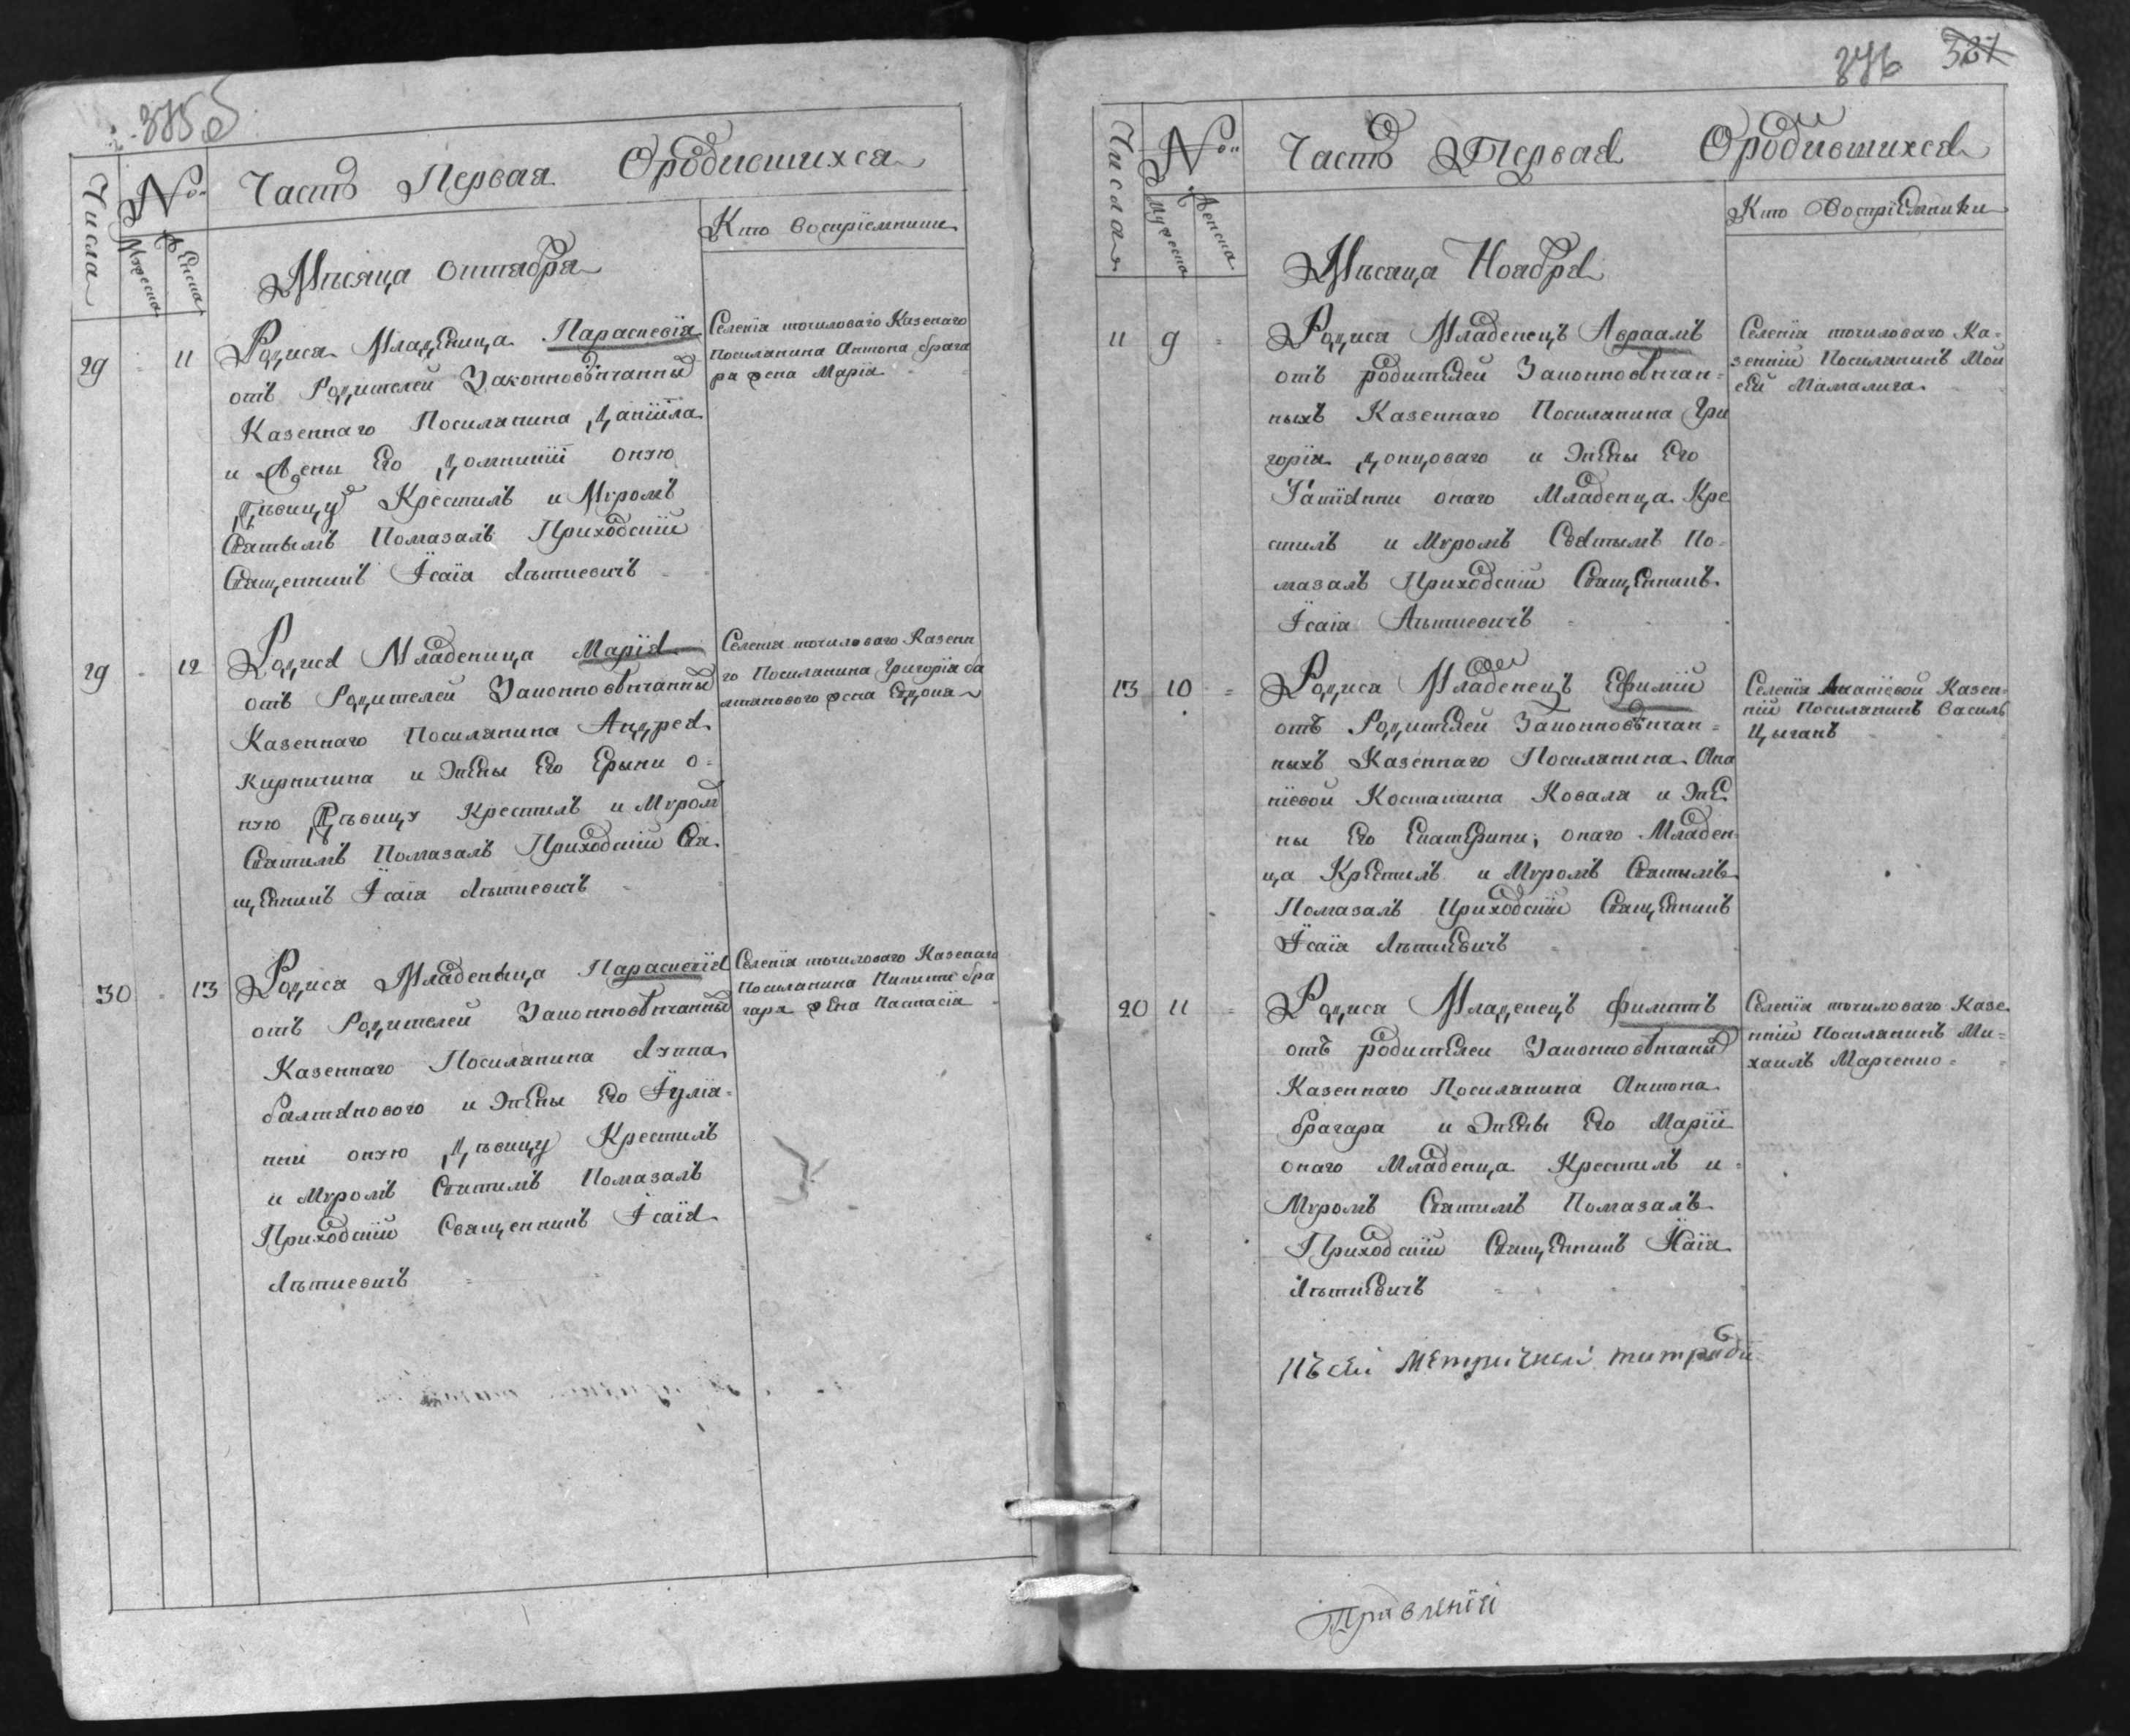 375 об
Числа
№
Мужеска
Женска
Часть Первая Ородившихся
Кто воспріемники
Мѣсяца октября
29 11
Родися Младеница Параскевія
отъ Родителей Законновѣнчанны
Казеннаго Поселянина Даніила
и Жены Его Домникіи оную
Дѣвицу Крестилъ и Мѵромъ
Святымъ Помазалъ Приходскій
Священникъ Ісаія Лѣткевичъ
Селенія точиловаго Казенаго
Поселянина Антона брага
ра жена Марія
29 12
Родися Младеница Марія
отъ Родителей Законновѣнчанны
Казеннаго Поселянина Андрея
Кирпичина и Жены Его Ерыни о-
ную Дѣвицу Крестилъ и Мѵром
Святимъ Помазалъ Приходскій Свя
щенникъ Ісаія Лѣткевичъ
Селенія точиловаго Казенн
го Поселянина Григорія ба
лтанового жена
30 13
Родися Младеница Параскевія
отъ Родителей Законновѣнчанны
Казеннаго Поселянина Луппа
балтанового и Жены Его Іулія-
ніи оную Дѣвицу Крестилъ
и Мѵромъ Святимъ Помазалъ
Приходскій Священникъ Ісаія
Лѣткевичъ
Селенія точиловаго Казенаго
Поселянина Никити бра
гара жена Настасія
376 387
Числа
№
Мужеска
Женска
Часть Первая Ородившихся
Кто Воспріемники
Мѣсяца Ноября
11 9
Родися Младенецъ Авраамъ
отъ родителей Законновѣнчан-
ныхъ Казеннаго Поселянина Гри
горія Донцоваго и Жены Его
онаго Младенца Кре
стилъ и Мѵромъ Святымъ По-
мазалъ Приходскій Священникъ
Ісаія Лѣткевичъ
Селенія точиловаго Ка-
зенній Поселянинъ Мои
сей Мамалига
13 10
Родися Младенецъ Ефимій
отъ Родителей Законновѣнчан-
ныхъ Казеннаго Поселянина Ана
ніевой Костантина Ковала и Же
ны Его Екатерини, онаго Младен
ца Крестилъ и Мѵромъ Святымъ
Помазалъ Приходскій Священникъ
Ісаія Лѣткевичъ
Селенія Ананіевой Казен-
ній Поселянинъ Василь
Цыганъ
20 11
Родися Младенецъ Филиппъ
отъ родителей Законновѣнчаны
Казеннаго Поселянина Антона
брагара и Жены Его Маріи
онаго Младенца Крестилъ и
Мѵромъ Святимъ Помазалъ
Приходскій Священникъ Ісаія
Лѣткевичъ
Селенія точиловаго Казе
нній Поселянинъ Ми-
хаилъ Марченко
Къ сей Метричнеи титради
Правленіи